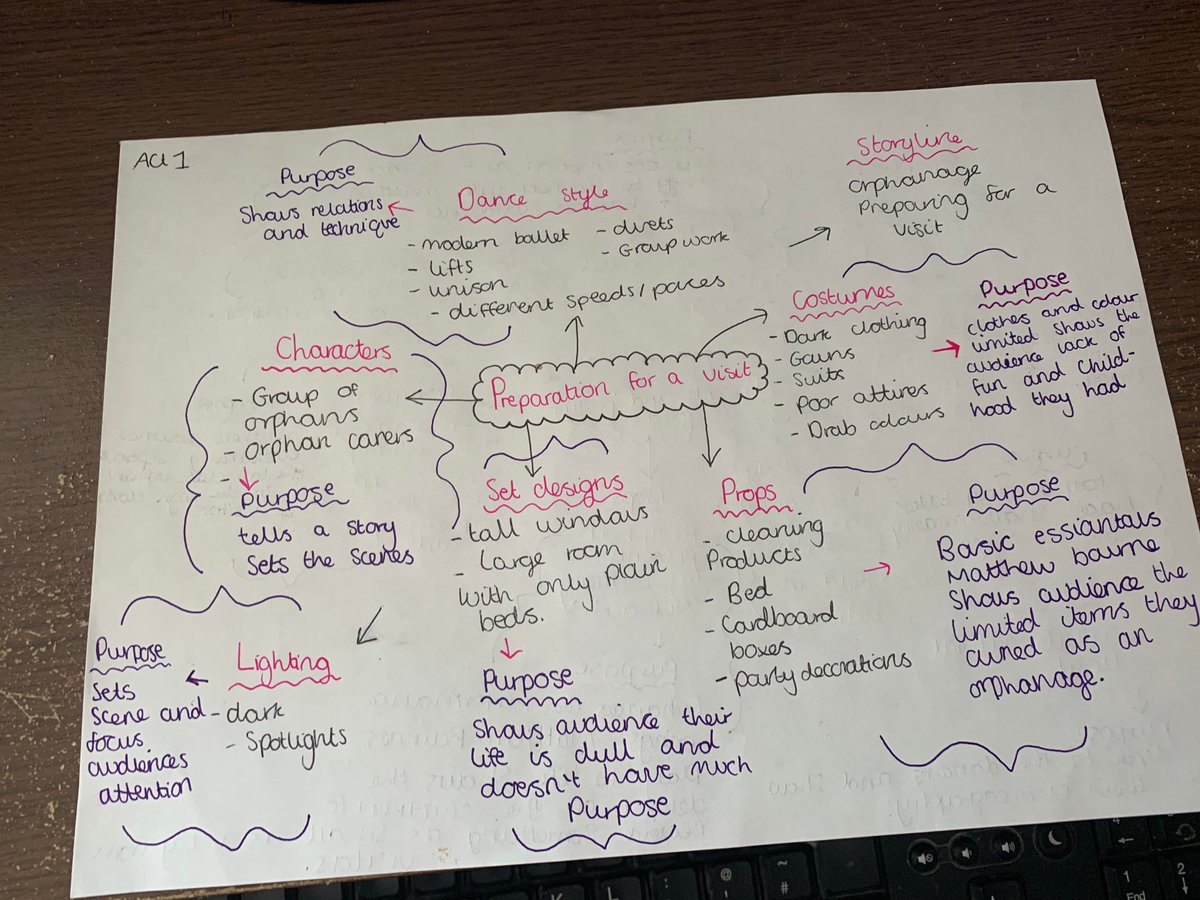 Act 1
Purpose
Shows relations
and technique
Dance style
- modern ballet
- lifts
- unison
- different speeds/paces
- duets
- Group work
Storyline
orphanage
Preparing for a
visit
Costumes
- Dark clothing
- Gowns
- Suits
- Poor attires
- Drab colours
Purpose
clothes and colour
limited shows the
audience lack of
fun and child-
hood they had
Preparation for a visit
Characters
- Group of
orphans
- orphan carers
-
Purpose
tells a story
Sets the scenes
Set designs
- tall windows
- Large room
with only plain
beds.
Purpose
Shows audience their
life is dull and
doesn't have much
Purpose
Props
- cleaning
Products
- Bed
- Cardboard
boxes
- party decorations
Purpose
Basic essiantals
Matthew bourne
Shows audience the
limited items they
owned as an
orphanage.
Lighting
- dark
- Spotlights
Purpose
Sets
scene and
focus
audiences
attention
@
~
#
4
1
End
2